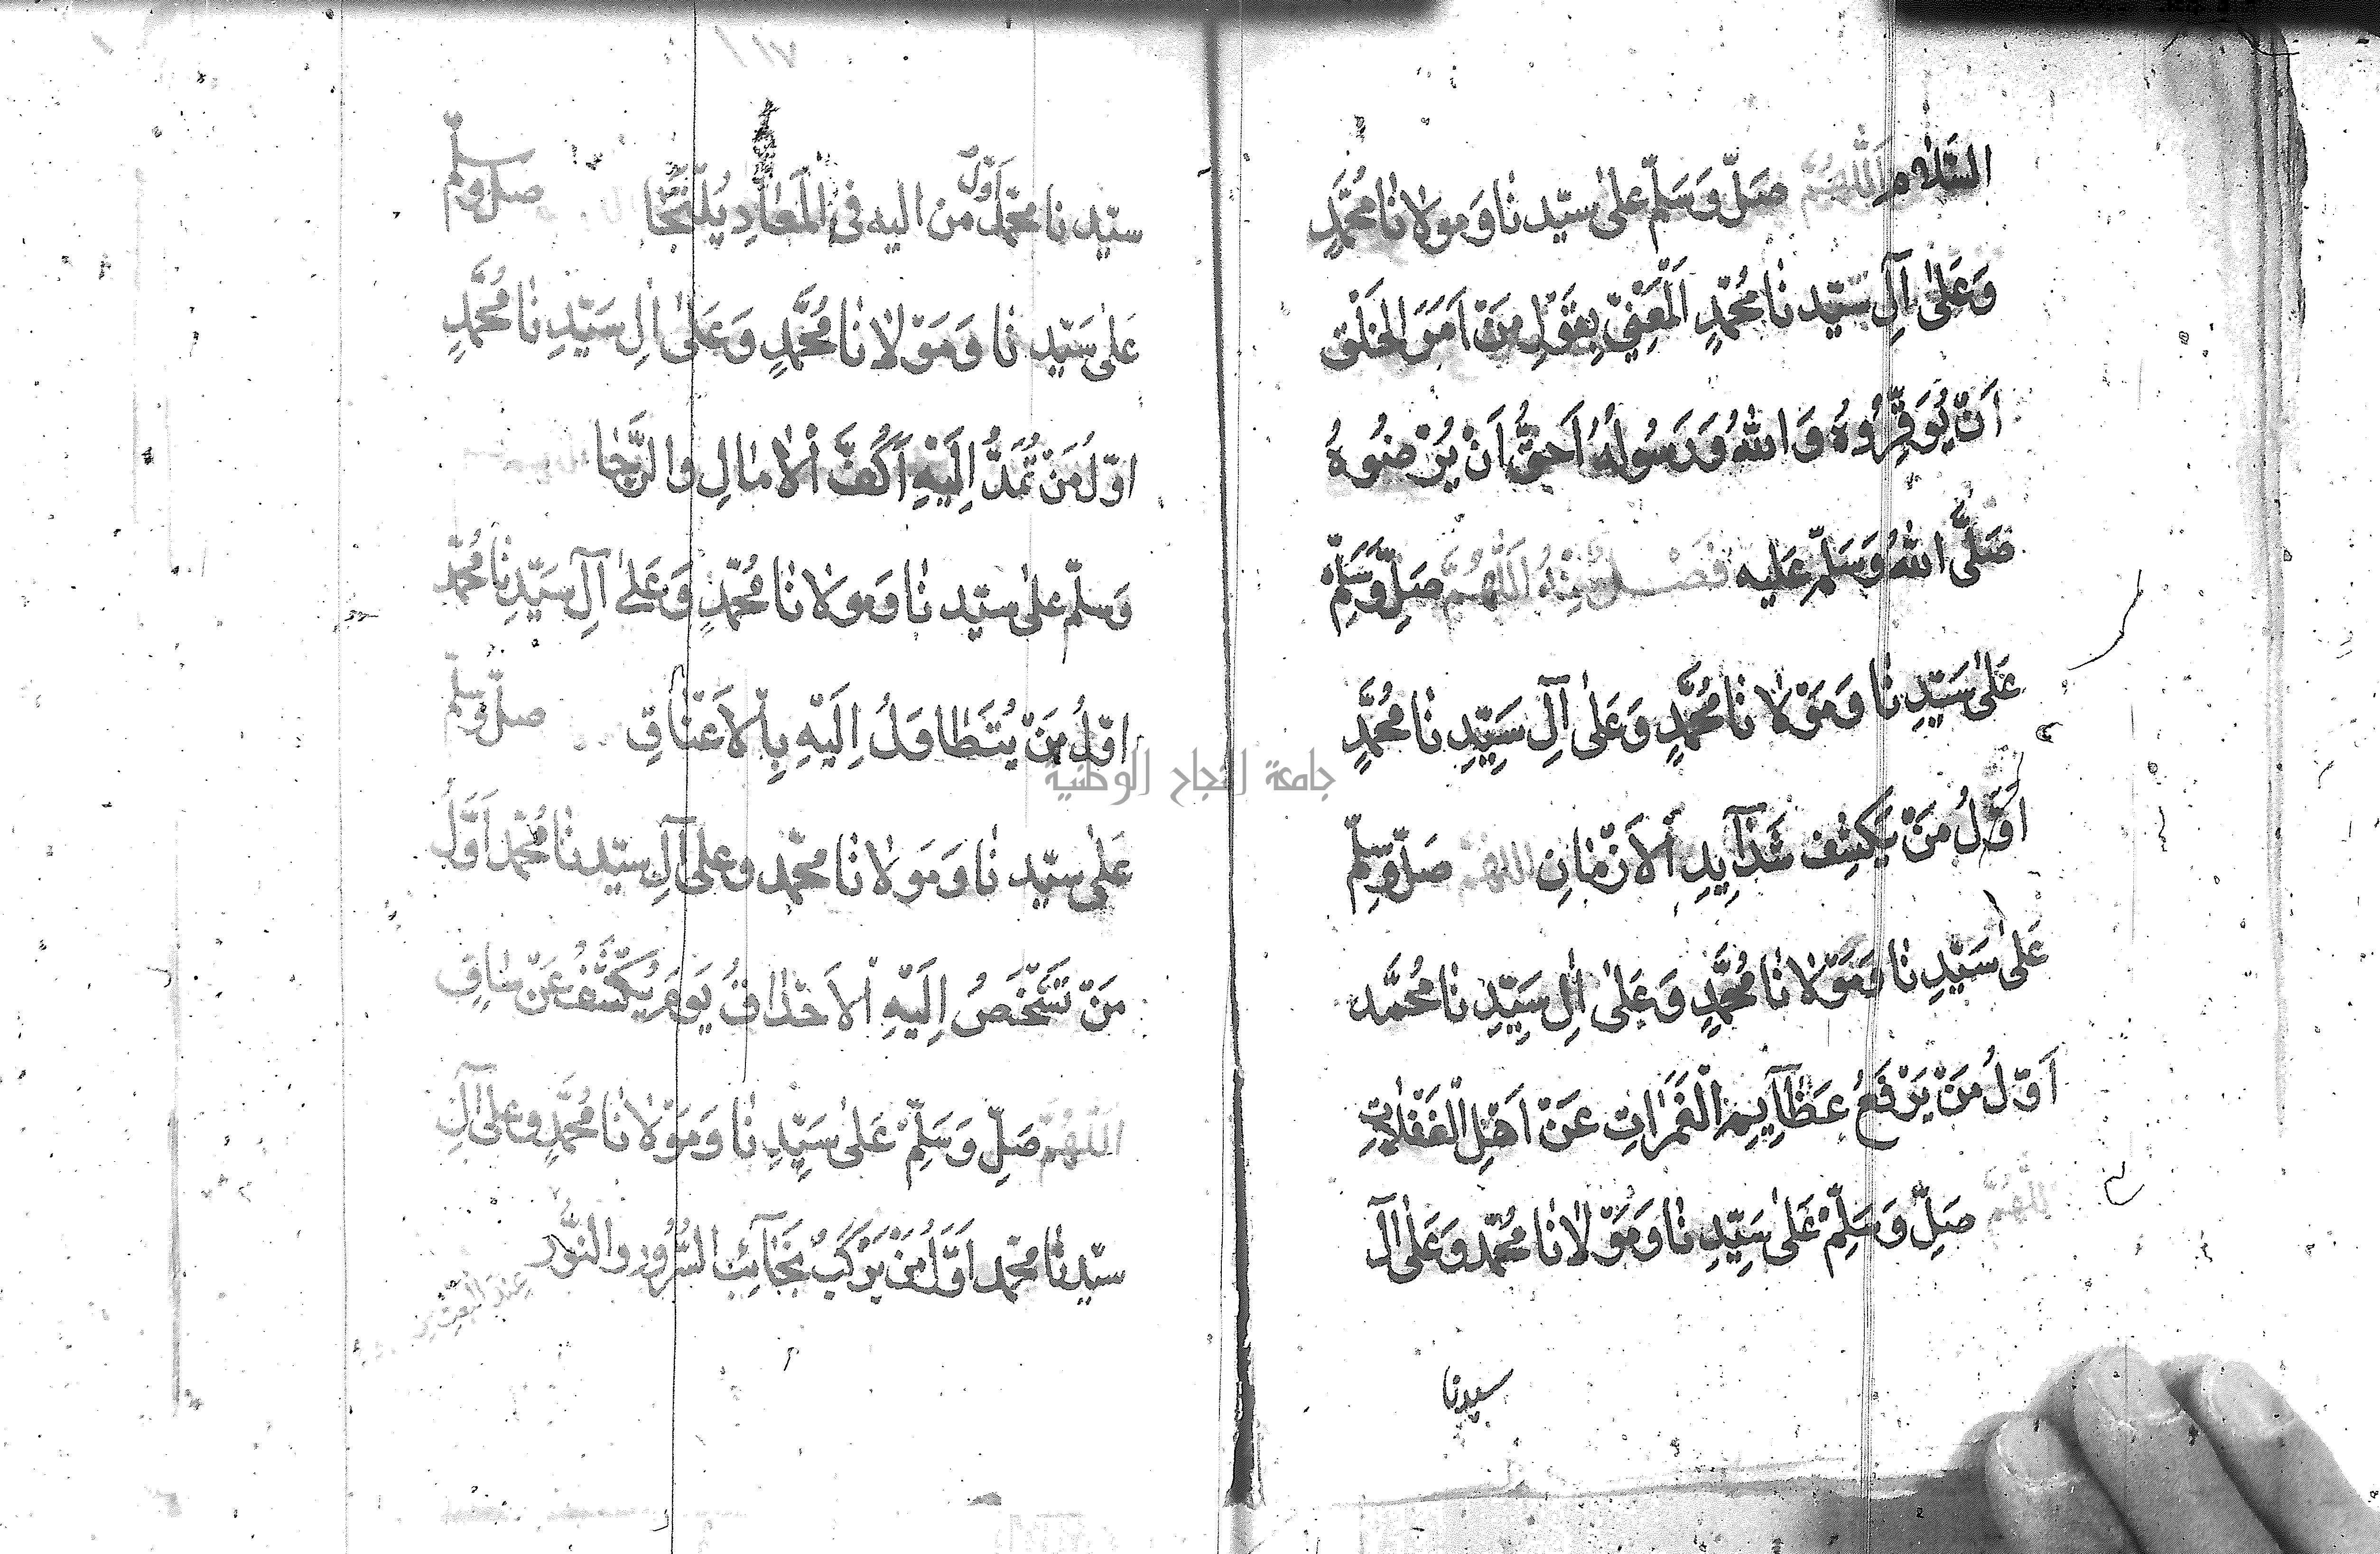 السَّلام اَللّٰهُمَّ صَلِّ وَسَلِّم عَلٰى سيّدنا وَمولانا مُحَمَّدٍ
وَعَلٰى آلِ سيّدنا مُحَمَّدٍ اَلْمَعْنِيِّ بِقَوْلِ مِنْ اَمَرَ الخَلْق
اَنْ يُوَقِّرُوهُ وَاللّٰهُ وَرَسُولُهُ اَحَقُّ اَنْ يُرْضُوهُ
صَلَّى اللّٰهُ وَسَلَّم عَلَيه فَصْل مِنْهُ اَللّٰهُمَّ صَلِّ وَسَلِّمْ
عَلٰى سَيِّدِنَا وَمَوْلَانَا مُحَمَّدٍ وَعَلٰى آلِ سَيِّدِنَا مُحَمَّدٍ
اَوَّلُ مَنْ يَكشِف شَدَآيِدِ اْلاَزْمَانِ اللهُمَّ صَلِّ وسلِّم
عَلٰى سَيِّدِنَا وَمَوْلَانَا مُحَمَّدٍ وَعَلٰى اٰلِ سَيِّدِنَا مُحَمَّد
اَوَّلُ مَنْ يَرْفَعُ عَظَآيِمِ اْلغَمَرَاتِ عَنْ اَهْلِ اْلغَفَلَاتِ
للّٰهُمَّ صَلِّ وَسَلِّمْ عَلٰى سَيِّدِنَا وَمَوْلَانَا مُحَمَّدٍ وَعَلٰى اٰل
سيدنا
سيّدنا محمّد اَوَّل من اليه فى الْمَعَادِ يُلْتَجَا صلّ وسلّم
عَلٰى سَيِّدِنَا وَمَوْلَانَا مُحَمَّدٍ وَعَلٰى اٰلِ سَيِّدِنَا مُحَمَّدٍ
اوّلُ مَنْ تُمَدُّ اِلَيْهِ اَكُفَّ اْلاٰمَالِ والرَّجَا
وَسلِّم عَلٰى سيّدنا وَمولانا مُحَمَّدٍ وَعَلٰى آلِ سَيِّدِنَا مُحَمَّدٍ
اوّلُ مَنْ يُتَطَاوَلُ اِلَيْهِ بِاْلاَعْنَاقِ صلّ وسلّم
عَلٰى سيّدنا وَمَوْلَانَا محمّد وعلى آلِ سيّدنا مُحَمَّد اَوَّلُ
مَنْ تَشْخَصُ اِلَيْهِ اْلاَحْدَاقُ يَوْمَ يُكَشَّفُ عَنْ سَاقِ
اَللّٰهُمَّ صَلِّ وَسَلِّمْ عَلٰى سَيِّدِنَا وَمَوْلَانَا مُحَمَّدٍ وعلى اٰلِ
سيّدنا محمّد اَوَّلُ مَنْ يَرْكَبُ نَجَآئِبُ السُّرُور والنُّور
جامعة النجاح الوطنية